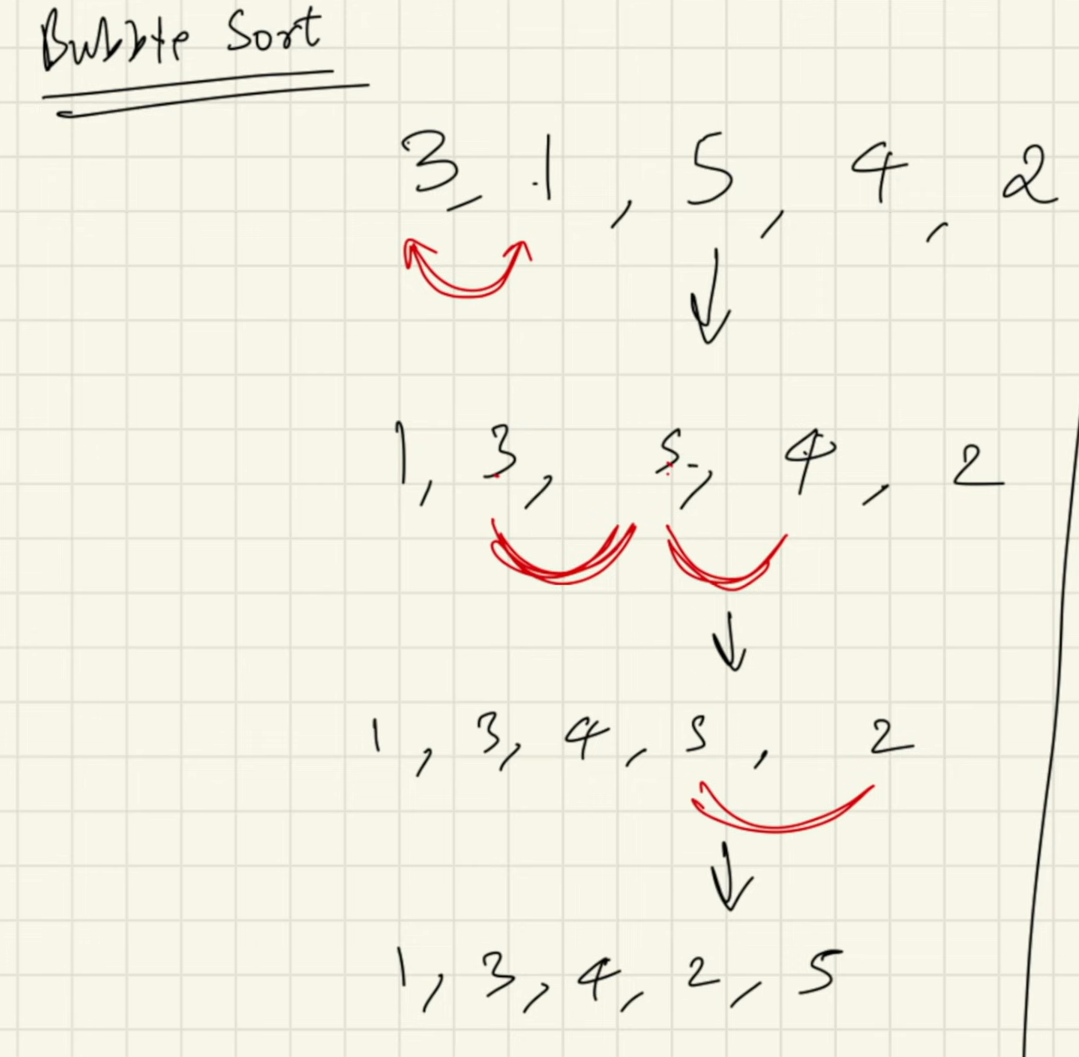 Bubble Sort
3, 1, 5, 4, 2
1, 3, 5, 4, 2
1, 3, 4, 5, 2
1, 3, 4, 2, 5